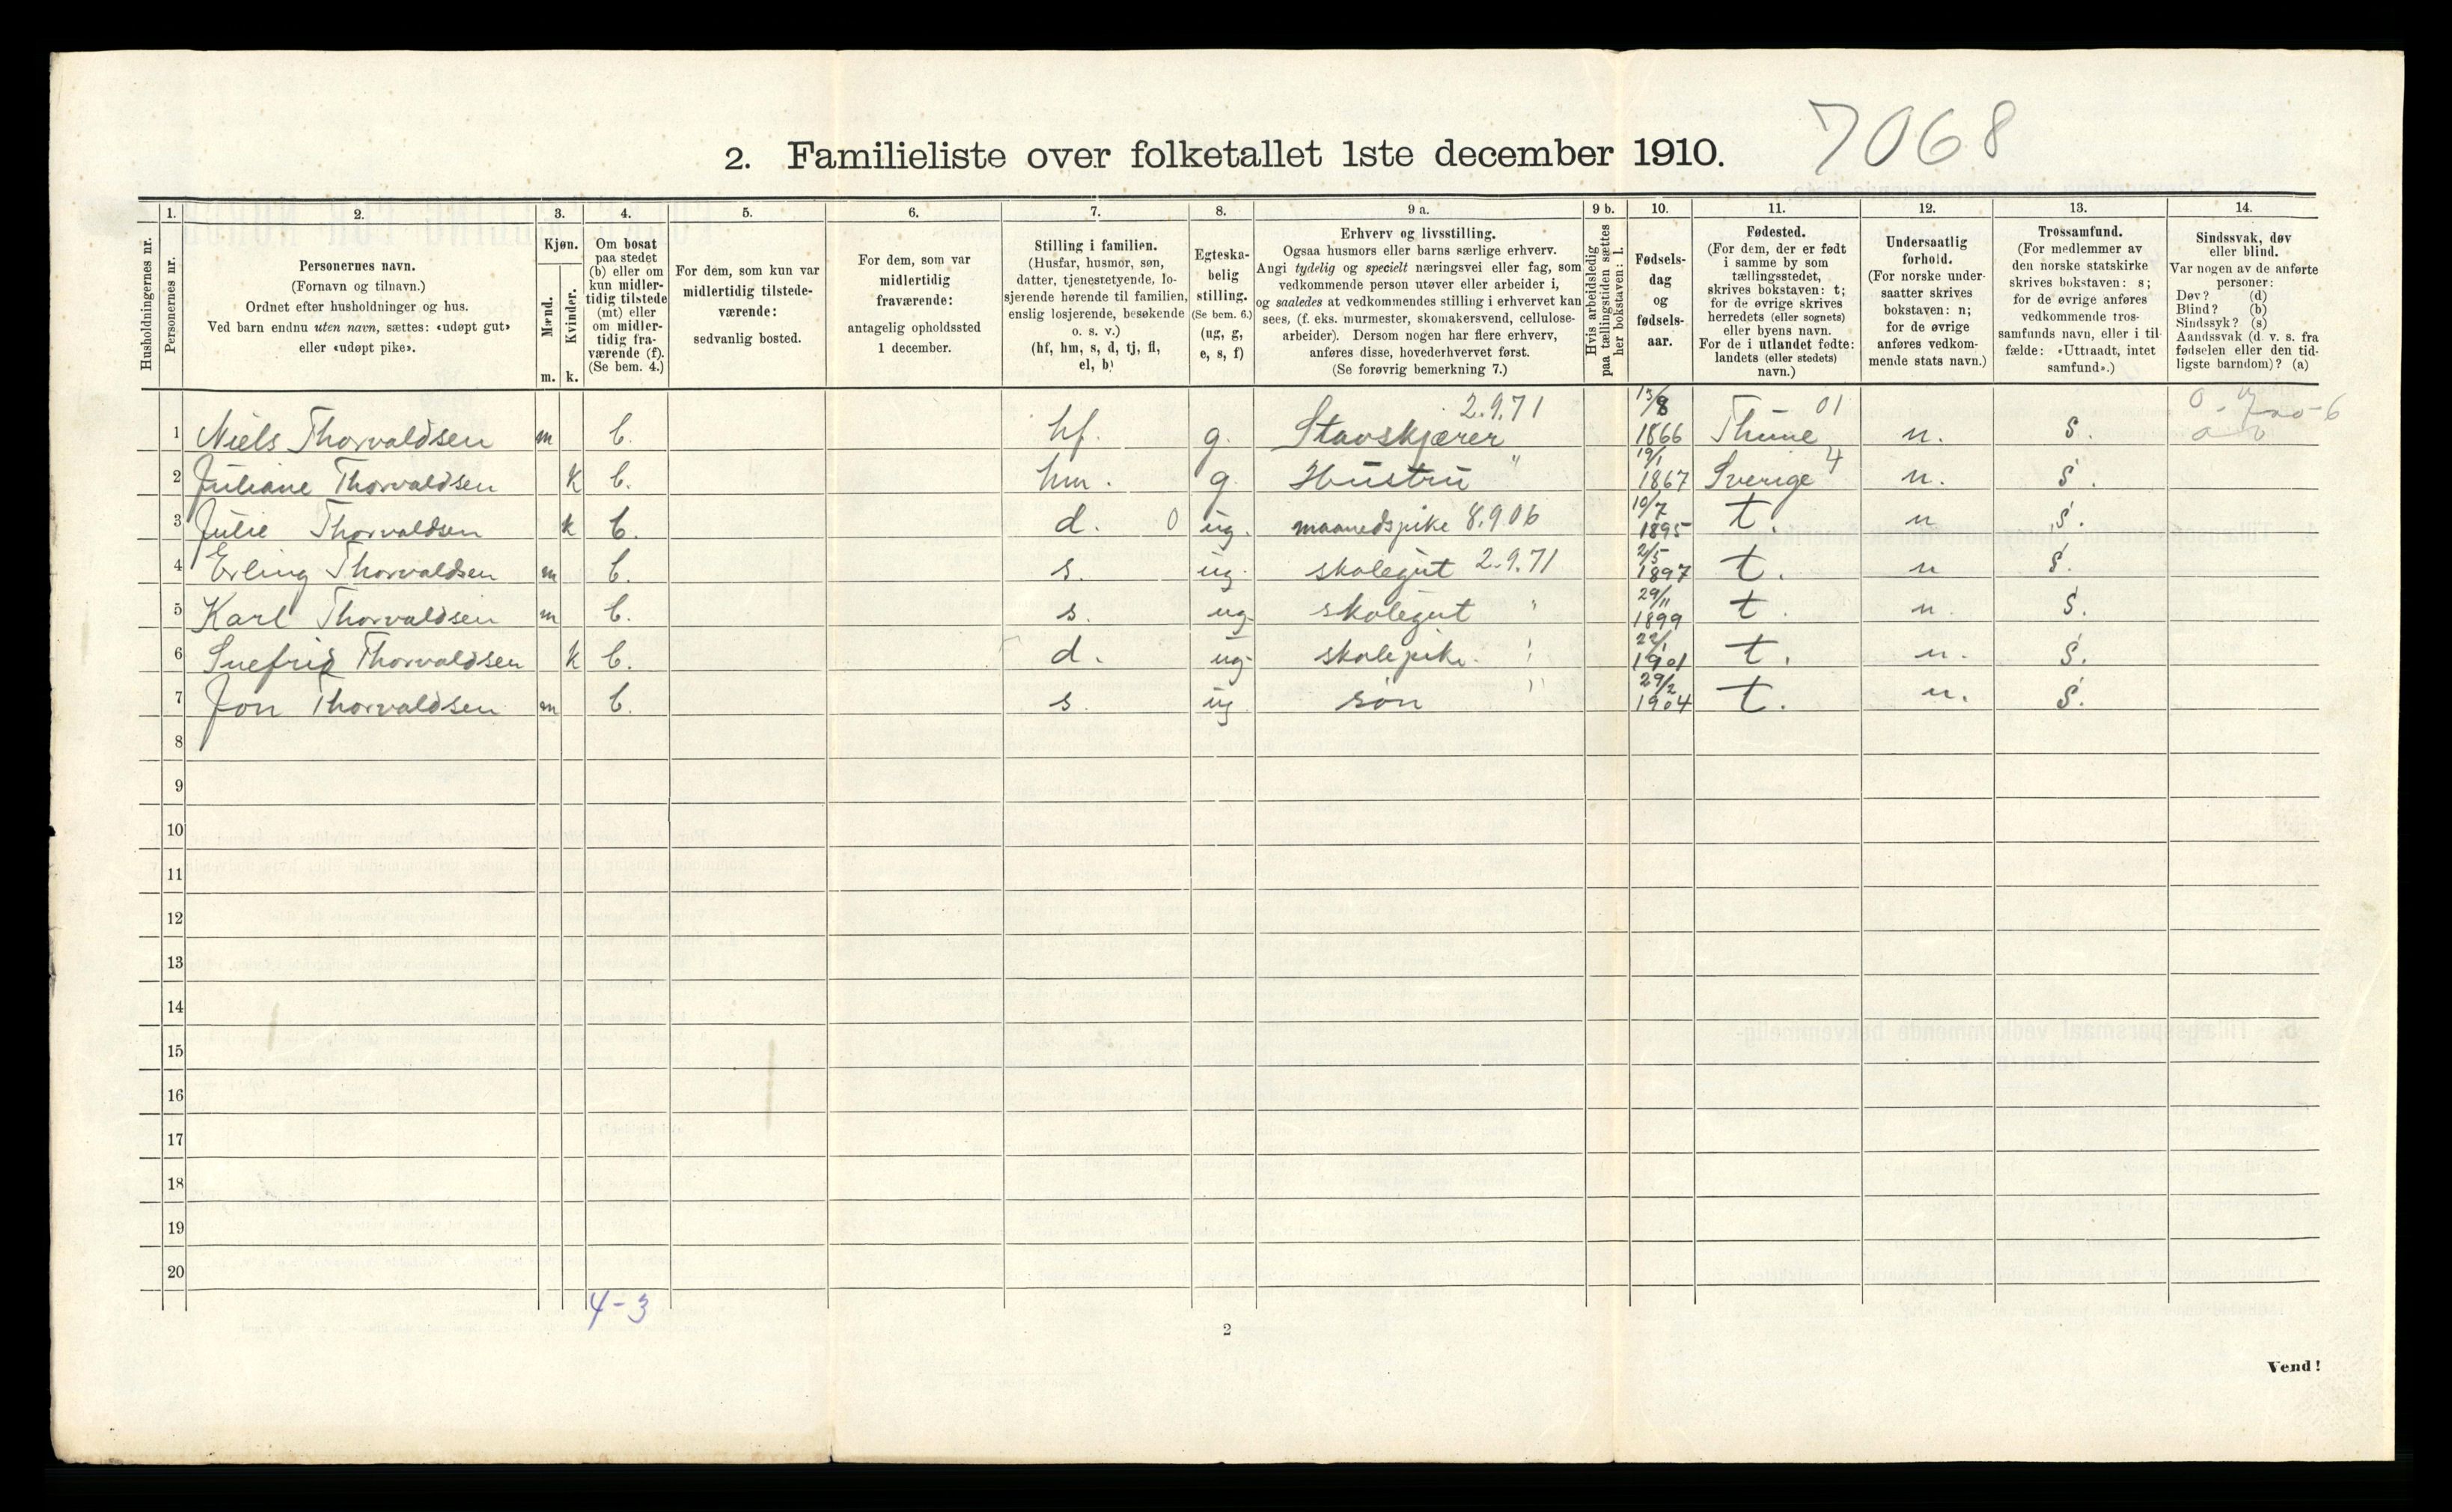 7068
2. Familieliste over folketallet 1ste december 1910.
Husholdningernes nr.
1. Personernes nr.
2. Personernes navn.
(Fornavn og tilnavn.)
Ordnet efter husholdninger og hus.
Ved barn endnu uten navn, sættes: «udøpt gut»
eller «udøpt pike».
3. Kjøn.
Mænd. Kvinder.
m. k.
4. Om bosat
paa stedet
(b) eller om
kun midler-
tidig tilstede
(mt) eller
om midler-
tidig fra-
værende (f).
(Se bem. 4.)
5. For dem, som kun var
midlertidig tilstede-
værende:
sedvanlig bosted.
6. For dem, som var
midlertidig
fraværende:
antagelig opholdssted
1 december.
7. Stilling i familien.
(Husfar, husmor, søn,
datter, tjenestetyende, lo-
sjerende hørende til familien,
enslig losjerende, besøkende
o. s. v.)
(hf, hm, s, d, tj, fl,
el, b)
8. Egteska-
belig
stilling.
(Se bem. 6.)
(ug, g,
e, s, f)
9 a. Erhverv og livsstilling.
Ogsaa husmors eller barns særlige erhverv.
Angi tydelig og specielt næringsvei eller fag, som
vedkommende person utøver eller arbeider i,
og saaledes at vedkommendes stilling i erhvervet kan
sees, (f. eks. murmester, skomakersvend, cellulose-
arbeider). Dersom nogen har flere erhverv,
anføres disse, hovederhvervet først.
(Se forøvrig bemerkning 7.)
9 b. Hvis arbeidsledig
paa tællingstiden sættes
her bokstaven: l.
10. Fødsels-
dag
og
fødsels-
aar.
11. Fødested.
(For dem, der er født
i samme by som
tællingsstedet,
skrives bokstaven: t;
for de øvrige skrives
herredets (eller sognets)
eller byens navn.
For de i utlandet fødte:
landets (eller stedets)
navn.)
12. Undersaatlig
forhold.
(For norske under-
saatter skrives
bokstaven: n;
for de øvrige
anføres vedkom-
mende stats navn.)
13. Trossamfund.
(For medlemmer av
den norske statskirke
skrives bokstaven: s;
for de øvrige anføres
vedkommende tros-
samfunds navn, eller i til-
fælde: «Uttraadt, intet
samfund».)
14. Sindssvak, døv
eller blind.
Var nogen av de anførte
personer:
Døv? (d)
Blind? (b)
Sindssyk? (s)
Aandssvak (d. v. s. fra
fødselen eller den tid-
ligste barndom)? (a)
1 Niels Thorvaldsen m b. hf. g. Stavskjærer 2.9.71 15/8 1866 Thune 01 n. s.
2 Juliane Thorvaldsen k b. hm. g. Hustru " 19/1 1867 Sverige 4 n. s.
3 Julie Thorvaldsen k b. d. 0 ug. maanedspike 8.9.06 10/7 1895 t. n s.
4 Erling Thorvaldsen m b. s. ug. skolegut 2.9.71 2/5 1897 t. n s.
5 Karl Thorvaldsen m b. s. ug. skolegut " 29/11 1899 t. n. s.
6 Snefrid Thorvaldsen k b. d. ug. skolepike. " 22/1 1901 t. n. s.
7 Jon Thorvaldsen m b. s. ug søn " 29/2 1904 t. n. s.
8
9
10
11
12
13
14
15
16
17
18
19
20
4-3
2
Vend!